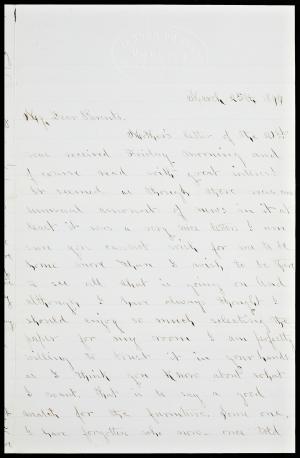 March 25th
My Dear Parents.
letter of the 21st
was received Friday morning and
of course read with great interest
It seemed as though there was an
amount of news in it at
least it was a very nice letter. I am
sure you cannot wish for me to be
home more than I wish to be there
to see all that is going on and
although I have always thought I
should enjoy so much selecting the
paper for my room I am perfectly
willing to trust it in your hands
as I think you know about what
I want, that is to say a good
match for the furniture. Some one,
I have forgotten who now once told